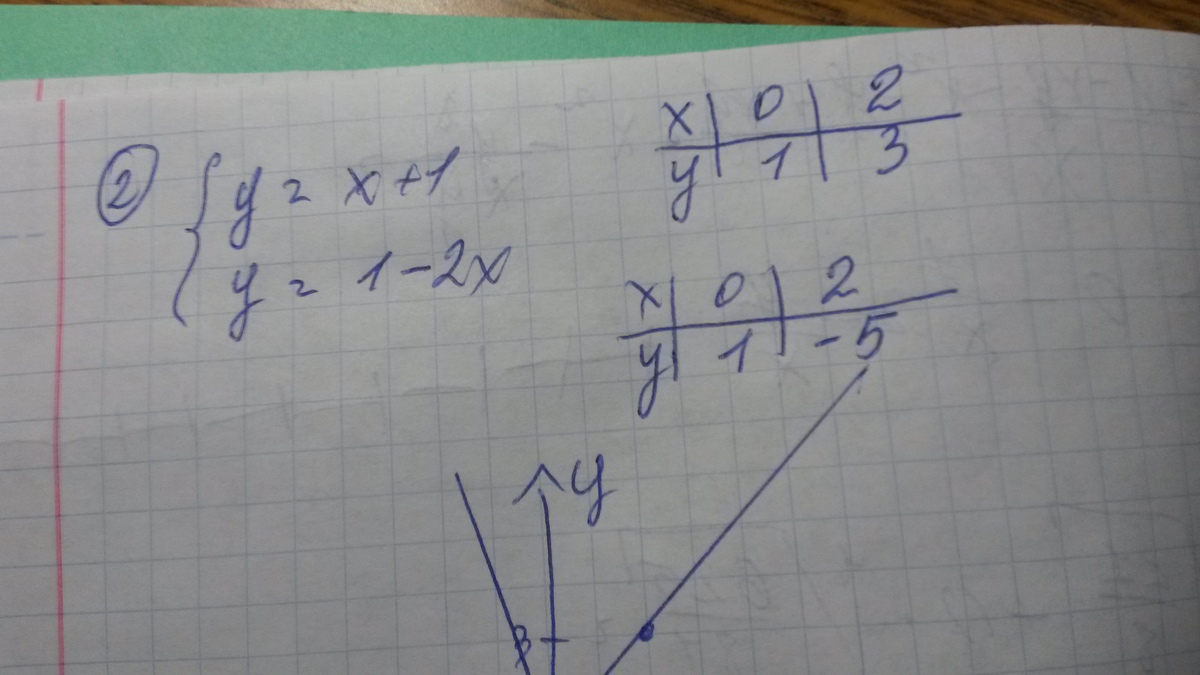 ② { y = x+1
y = 1-2x
x | 0 | 2
y | 1 | 3
x | 0 | 2
y | 1 | -5
y
3